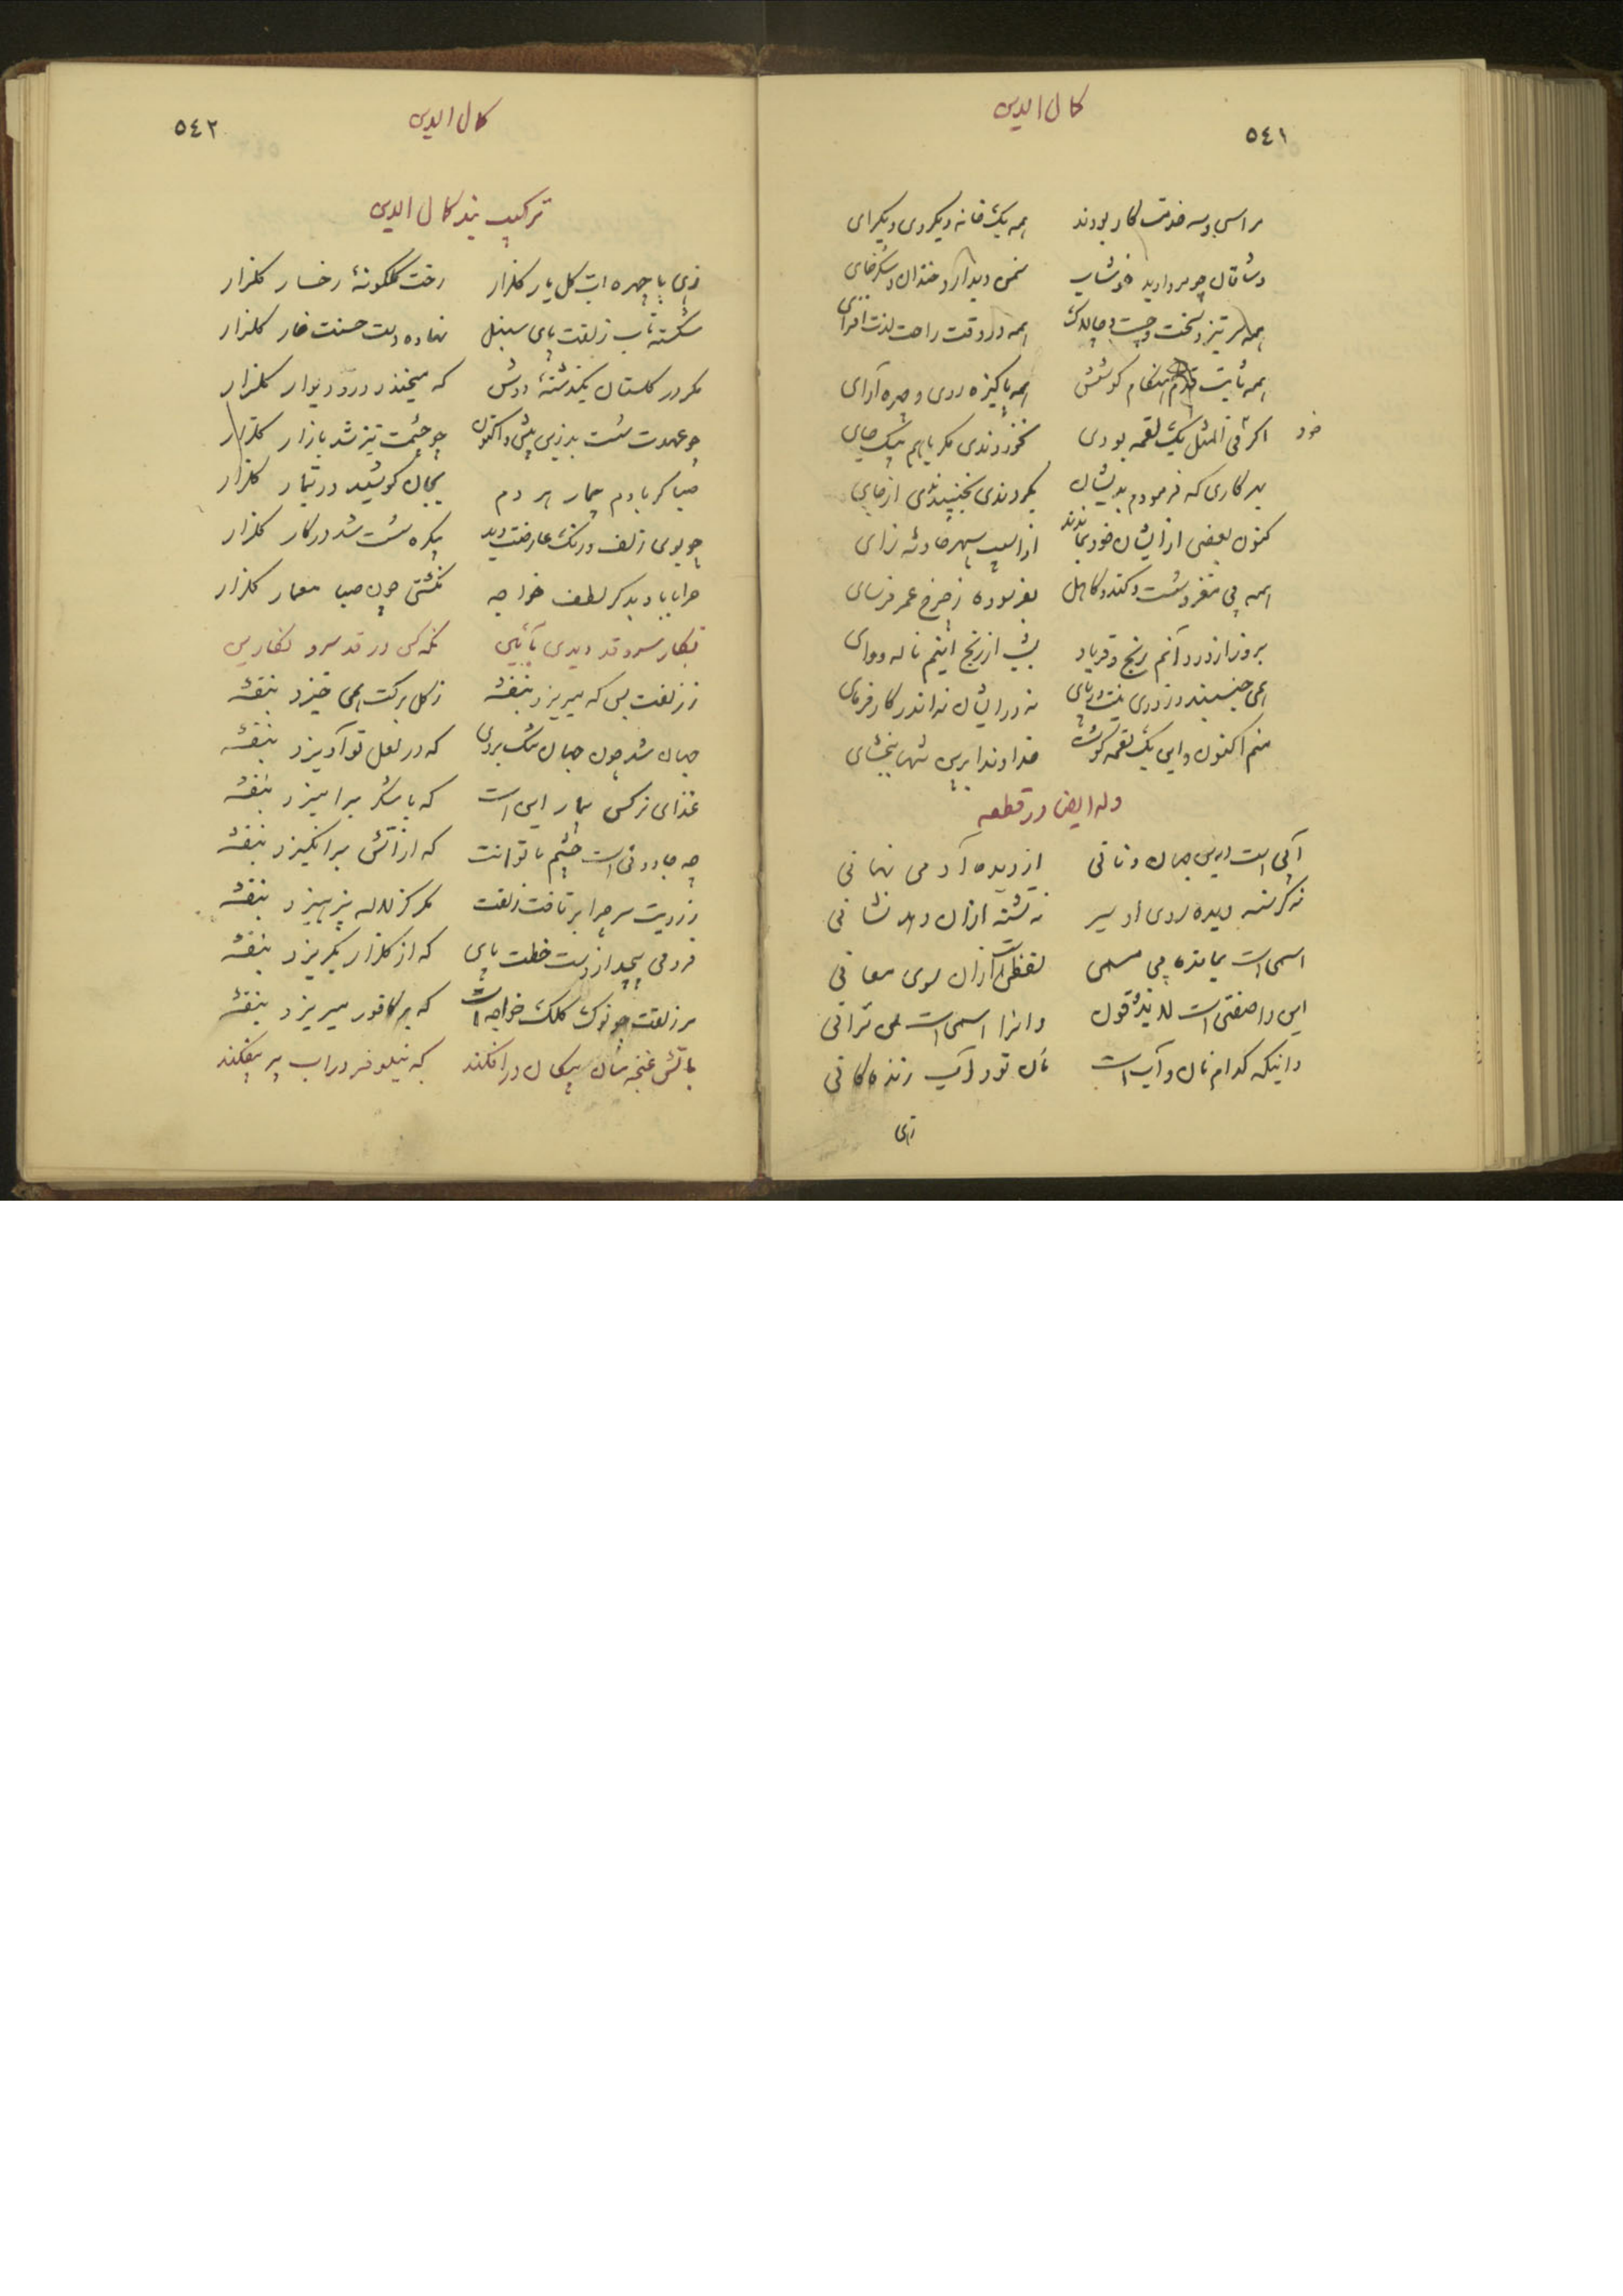 ٥٤١
کمال الدین
مرا سی و سه خدمتکار بودند همه یک خانه و یکروی و یکرای
وشاقان چو مروارید خوشاب سمن دیدار و خندان و شکرخای
همه سرتیز و سخت و چست و چالاک همه در وقت راحت لذت افزای
همه ثابت قدم هنگام کوشش همه پاکیزه روی و چهره آرای
خود اگر فی المثل یک لقمه بودی نخوردندی مگر باهم بیک جای
بهر کاری که فرمودم بدیشان بکردندی بجنبیدندی از جای
کنون بعضی از ایشان خود نماندند از آسیب سپهر حادثه زای
همه بی مغز و سست و کند و کاهل بفرسوده ز چرخ عمر فرسای
بروز از درد آنم رنج و فریاد بشب از رنج اینم ناله و وای
همی جنبند در زوری
نه در ایشان نه اندر کارفرمای
منم اکنون و این یک لقمه گوشت خداوندا برین تنها ببخشای
وله ایضا در قطعه
آبی است درین جهان و نانی از دیده آدمی نهانی
نه گرسنه دیده روی او سیر نه تشنه ازان دهد نشانی
اسمی است بمانده بی مسمی لفظی است ازان سوی معانی
این را صفتی است لا یذوقون وانرا اسمی است لن ترانی
دانیکه کدام نان و آب است نان تو و آب زندگانی
زهی
٥٤٢
کمال الدین
ترکیب بند کمال الدین
زهی با چهره ات گل یار گلزار رخت گلگونهٔ رخسار گلزار
شکسته تاب زلفت پای سنبل نهاده دست حسنت خار گلزار
مگر در گلستان بگذشتهٔ دوش که میخندد در و دیوار گلزار
چو عهدت سست بد زین پیش و اکنون چو چشمت تیز شد بازار گلزار
صبا گر با دم بیمار هر دم بجان کوشید در تیمار گلزار
چو بوی زلف و رنگ عارضت دید بیکره سست شد در کار گلزار
چرا باید بدگر لطف خواجه نگشتی چون صبا معمار گلزار
نگار سرو قد دیدی بآئین نگه کن در قد سرو نگارین
ز زلفت بس که میریزد بنفشه ز گل برگت همی خیزد بنفشه
جهان شد چون جهان تنگ بروی که در لعل تو آویزد بنفشه
غذای نرگس بیمار این است که با شکر برامیزد بنفشه
چه جادوئی است چشم ناتوانت که از آتش برانگیزد بنفشه
ز رویت سر چرا برتافت زلفت مگر کز لاله پرهیزد بنفشه
فرو می پیچد از دست خطت پای که از گلزار بگریزد بنفشه
سر زلفت چو نوک کلک خواجه است که بر کافور میریزد بنفشه
بآتش غنچه سان پیکان درافکند که نیلوفر در آب سپر بیفکند